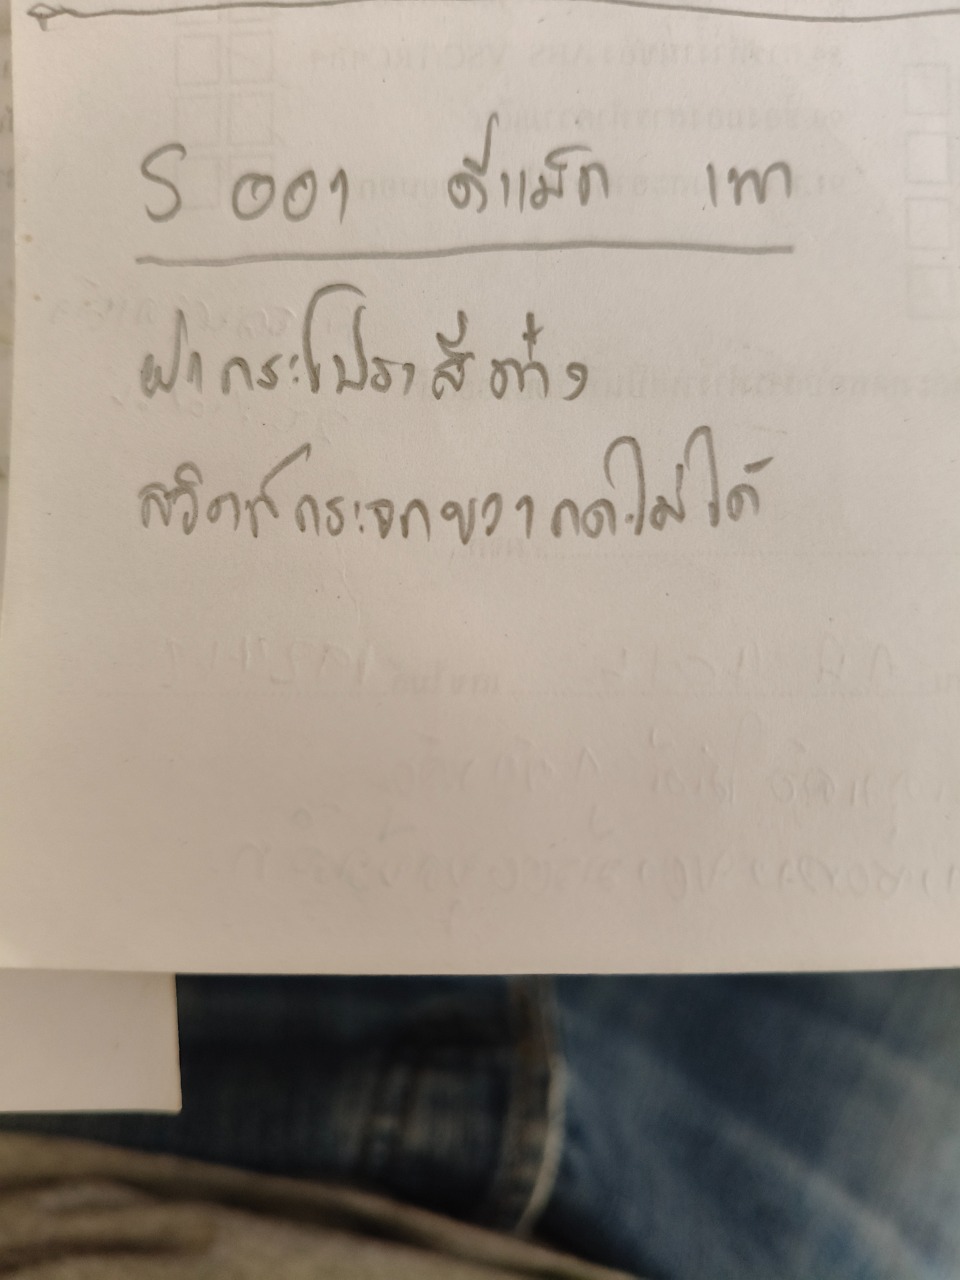 S 001 ดีแม็ก เทา
ฝากระโปรงสีด่าง
สวิตช์กระจกขวากดไม่ได้